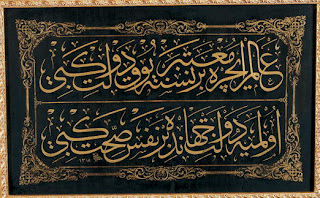 عالم ایچره معتبر بر نسنه یوق دولت كبی
اولمیه دولت جهانده بر نفس صحت كبی